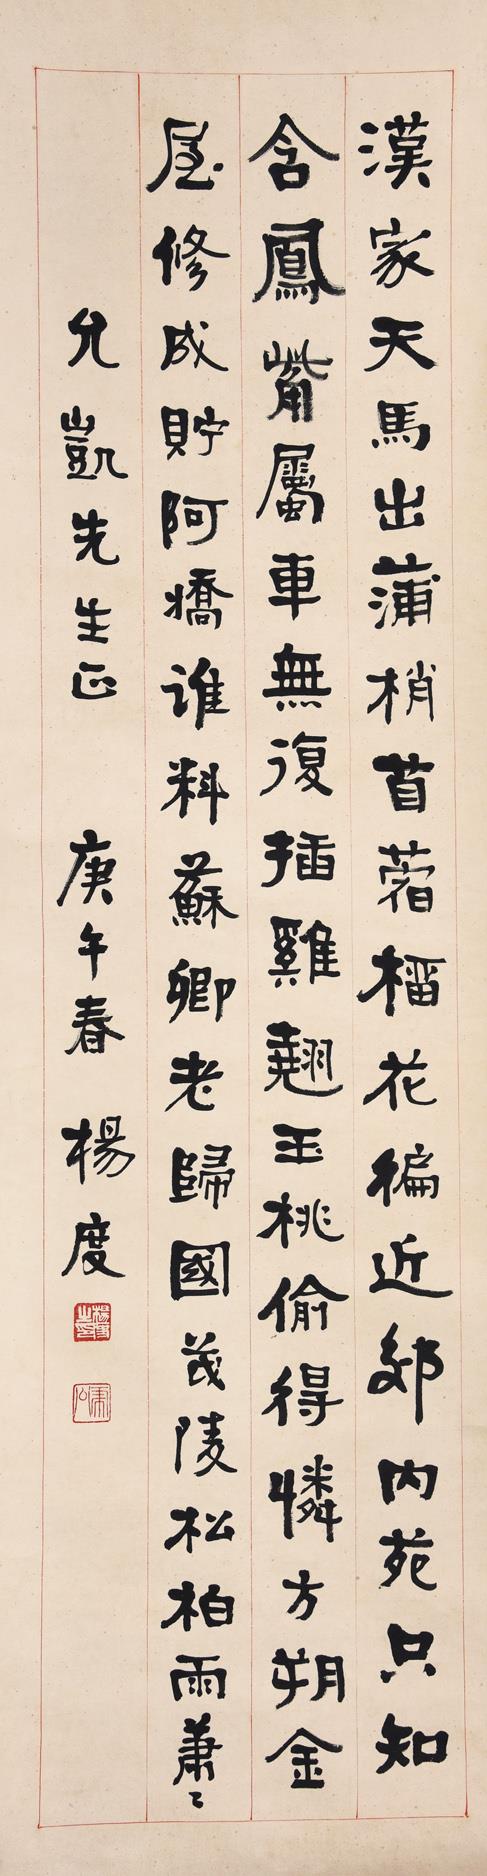 漢家天馬出蒲梢苜蓿榴花徧近郊内苑只知
含鳳觜屬車無復插雞翹玉桃偷得憐方朔金
屋修成貯阿嬌誰料蘇卿老歸國茂陵松柏雨蕭〻
允凱先生正 庚午春 楊度
楊度之印
虎公